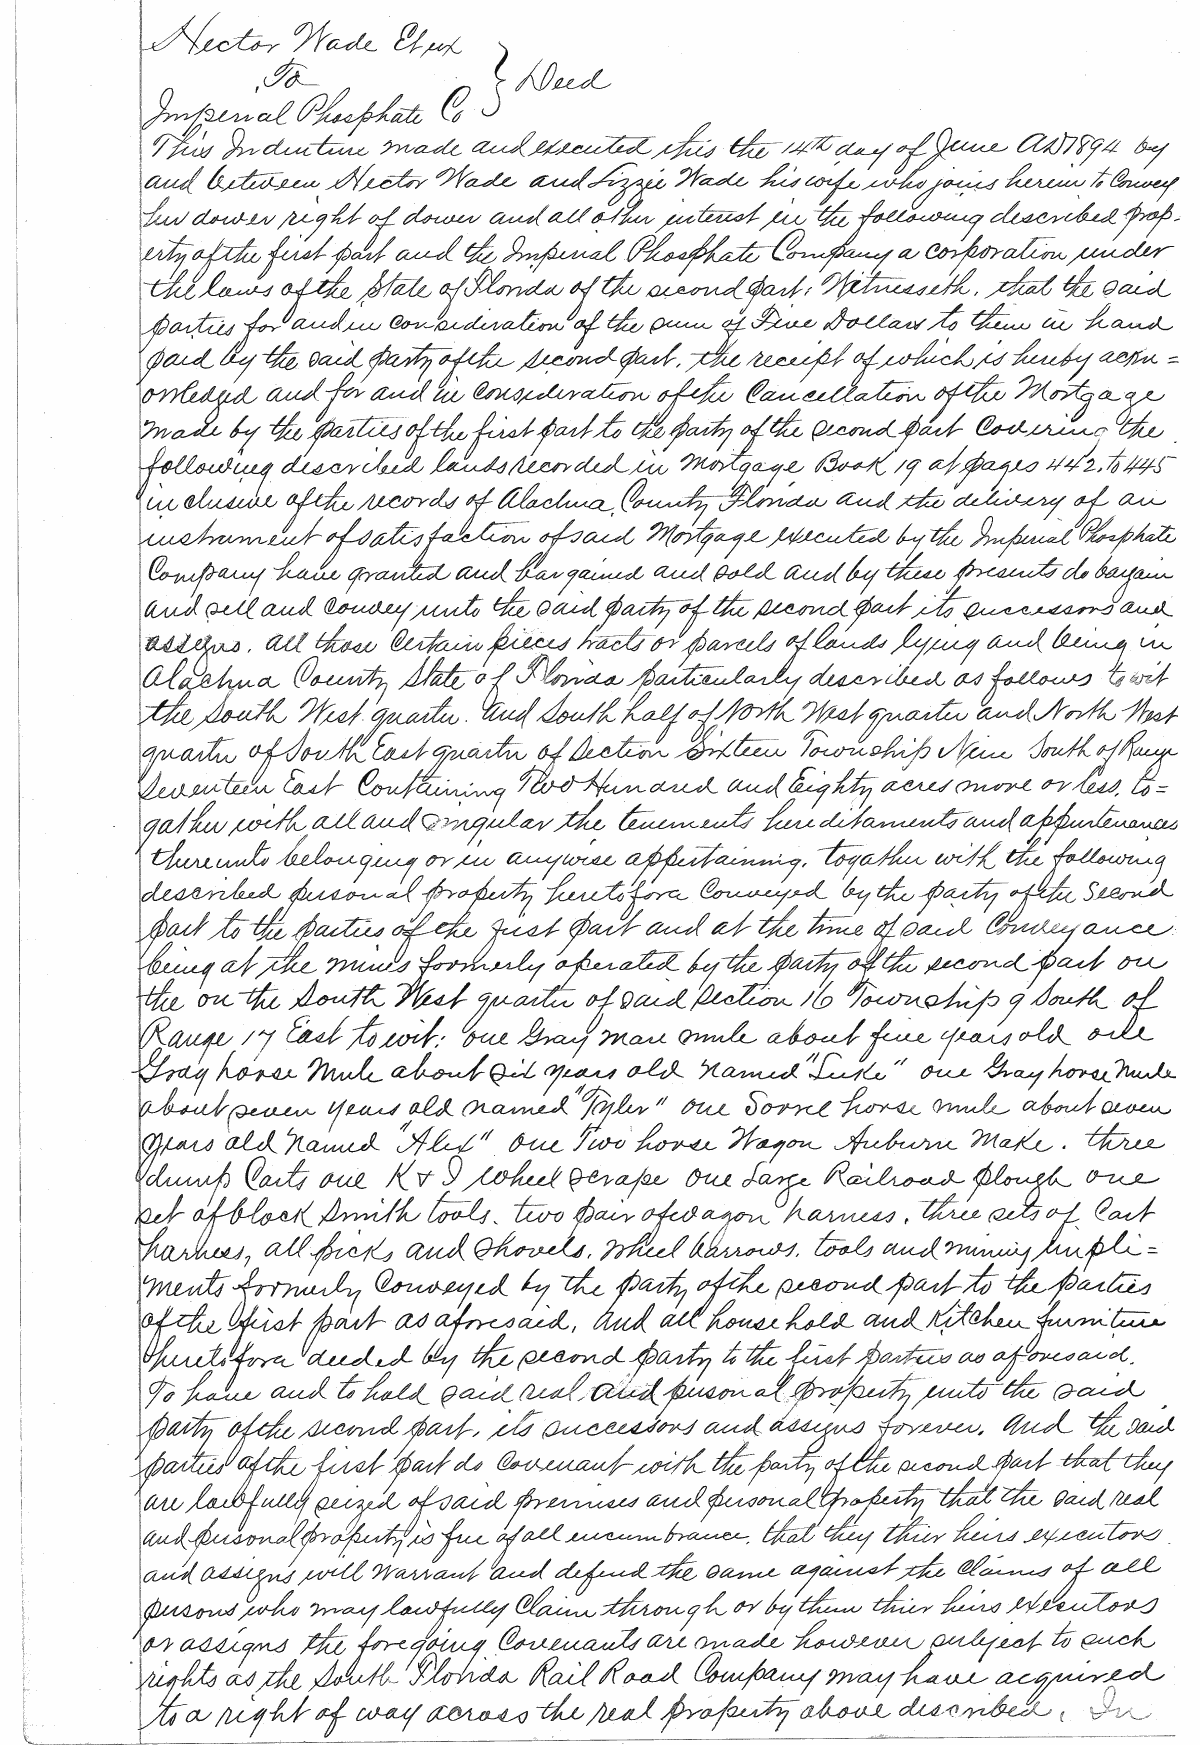 Hector Wade Et ux
To } Deed
Imperial Phosphate Co
This Indenture made and executed this the 14th day of June AD 1894 by
and between Hector Wade and Lizzie Wade his wife who joins herein to Convey
her dower right of dower and all other interest in the following described prop-
erty of the first part and the Imperial Phosphate Company a corporation under
the laws of the State of Florida of the second part, Witnesseth, that the said
parties for and in consideration of the sum of Five Dollars to them in hand
paid by the said party of the second part, the receipt of which is hereby ackn=
owledged and for and in consideration of the Cancellation of the Mortgage
made by the parties of the first part to the party of the second part Covering the
following described lands recorded in Mortgage Book 19 at pages 442 to 445
inclusive of the records of Alachua County Florida and the delivery of an
instrument of satisfaction of said Mortgage executed by the Imperial Phosphate
Company have granted and bargained and sold and by these presents do bargain
and sell and convey unto the said party of the second part its successors and
assigns. all those Certain pieces tracts or parcels of lands lying and being in
Alachua County State of Florida particularly described as follows to wit
the South West quarter. and South half of North West quarter and North West
quarter of South East quarter of Section Sixteen Township Nine South of Range
Seventeen East Containing Two Hundred and Eighty acres more or less. to=
gather with all and singular the tenements hereditaments and appurtenances
thereunto belonging or in anywise appertaining. togather with the following
described personal property heretofora Conveyed by the party of the Second
part to the parties of the first part and at the time of said Conveyance
being at the mines formerly operated by the party of the second part on
the on the South West quarter of said Section 16 Township 9 South of
Range 17 East to wit: one Gray mare mule about five years old one
Gray horse Mule about six years old named "Luke" one Gray horse Mule
about seven years old named "Tyler" one Sorrel horse mule about seven
years old named "Alex" one Two horse Wagon Auburn Make. three
dump Carts one K & J wheel scrape one Large Railroad plough one
set of black Smith tools. two pair of wagon harness. three sets of Cart
harness, all picks and shovels. wheel barrows. tools and mining impli=
ments formerly Conveyed by the party of the second part to the parties
of the first part as aforesaid. And all household and Kitchen furniture
heretofora deeded by the second party to the first parties as aforesaid.
To have and to hold said real and personal property unto the said
party of the second part, its successors and assigns forever. And the said
parties of the first part do Covenant with the party of the second part that they
are lawfully seized of said premises and personal property that the said real
and personal property is free of all encumbrance. that they thier heirs executors
and assigns will Warrant and defend the same against the Claims of all
persons who may lawfully Claim through or by them thier heirs executors
or assigns the foregoing Covenants are made however subject to such
rights as the South Florida Rail Road Company may have acquired
to a right of way across the real property above described. In